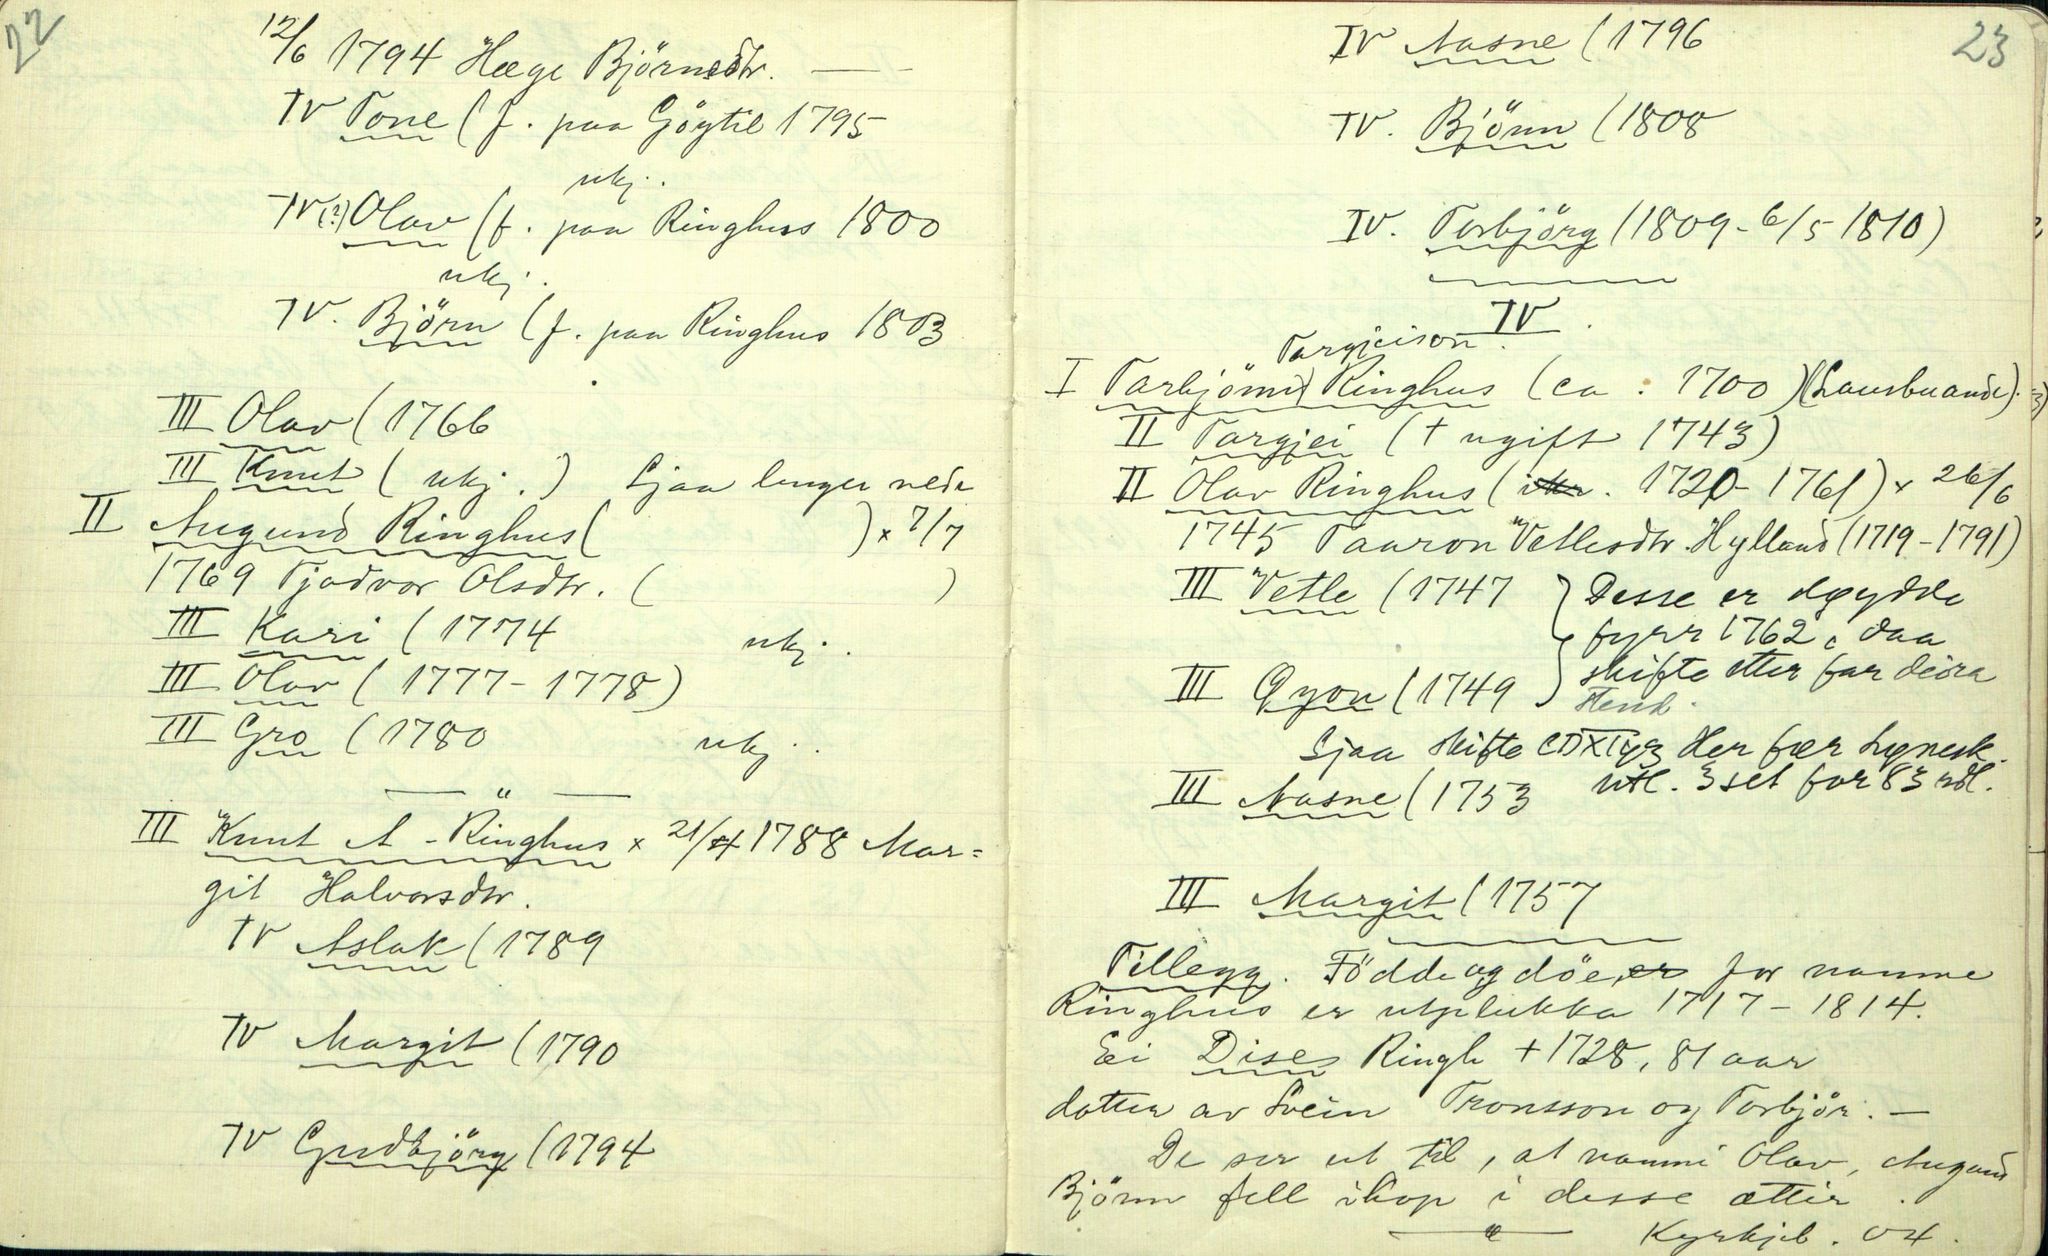 22
12/6 1794 Hæge Björnsdtr. —
IV Tone (f. paa Göytil 1795
ukj.
IV(?) Olav (f. paa Ringhus 1800
ukj.
IV. Björn (f. paa Ringhus 1803
III Olav (1766
III Knut ( ukj. ) Sjaa lenger nede
II Augund Ringhus ( ) × 7/7
1769 Tjodvor Olsdtr. ( )
III Kari (1774 ukj.
III Olav (1777 - 1778)
III Gro (1780 ukj.
— " —
III Knut A - Ringhus × 21/4 1788 Mar=
git Halvorsdtr.
IV Aslak (1789
IV Margit (1790
IV Gudbjörg (1794
23
IV Aasne (1796
IV. Björn (1808
IV. Torbjörg (1809 - 6/5 1810)
IV.
Targjeison
I Tarbjörn Ringhus (ca. 1700) (Lausbuande).
II Targjei († ugift 1743)
II Olav Ringhus ( 1720 - 1761) × 26/6
1745 Taaron Vetlesdtr. Hylland (1719 - 1791)
III Vetle (1747 Desse er døydde
fyrr 1762, daa
III Øyon (1749 skifte etter far deira
stend.
Sjaa skifte Her fær
III Aasne (1753 utl. 3 set for 83 rdl.
III Margit (1757
Tillegg. Födde og döe er for namne
Ringhus er utplukka 1717 - 1814.
Ei Dises Ringh † 1728, 81 aar
dotter av Svein Tronsson og Torbjör. —
De ser ut til, at namni Olav, Augund
Björn fell ihop i desse ættir.
— " — Kyrkjeb. 04.